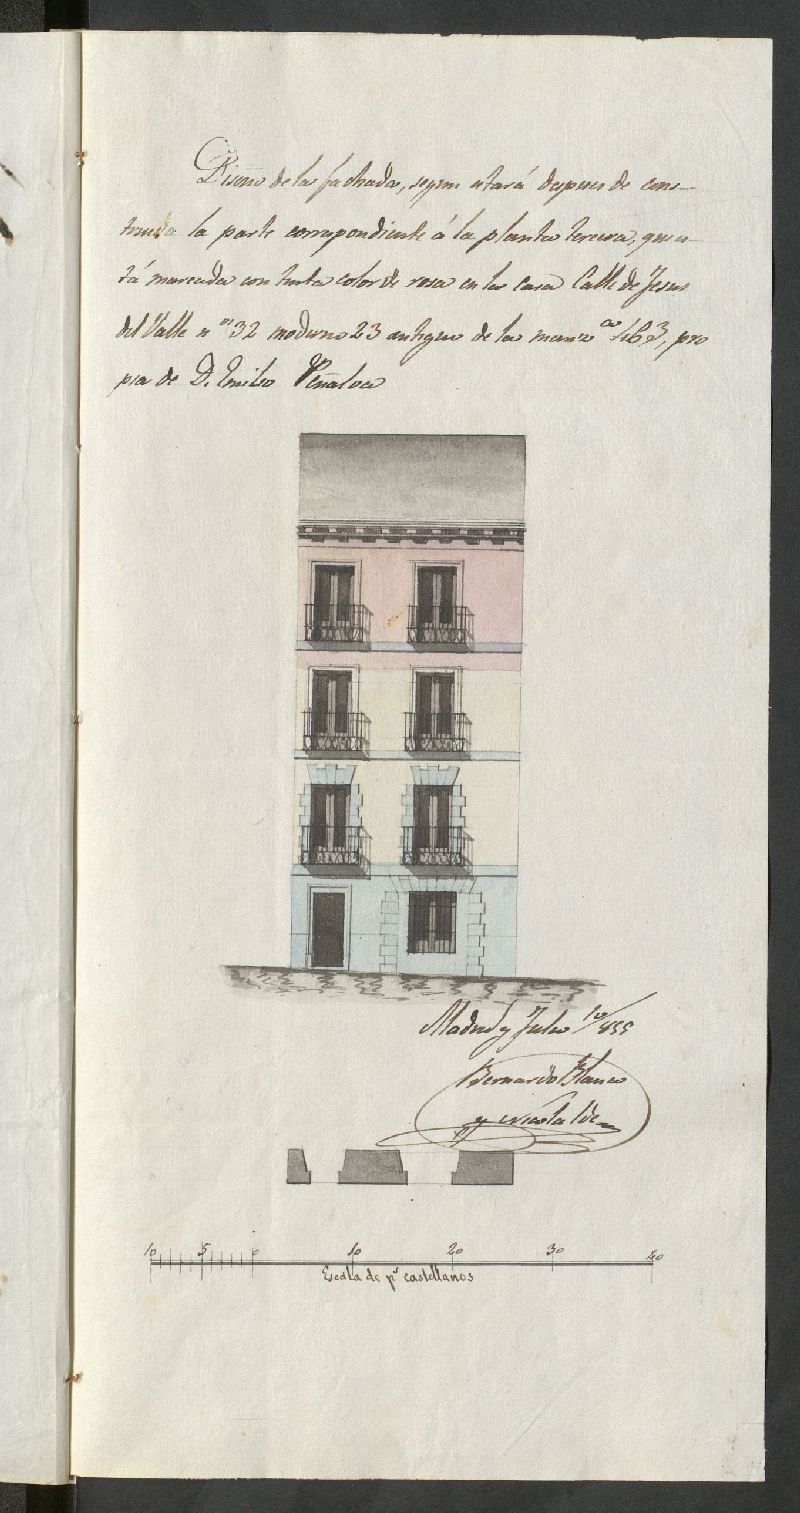 Diseño de la fachada, segun estará despues de cons-
truida la parte correspondiente á la planta tercera, que es-
tá marcada con tinta color de rosa en la casa Calle de Jesus
del Valle nº 32 moderno 23 antiguo de la manzª 463, pro
pia de D. Emilio Peñalva
Madrid y Julio 10/855
Bernardo Blanco
y
10 5 0 10 20 30 40
Escala de ps castellanos